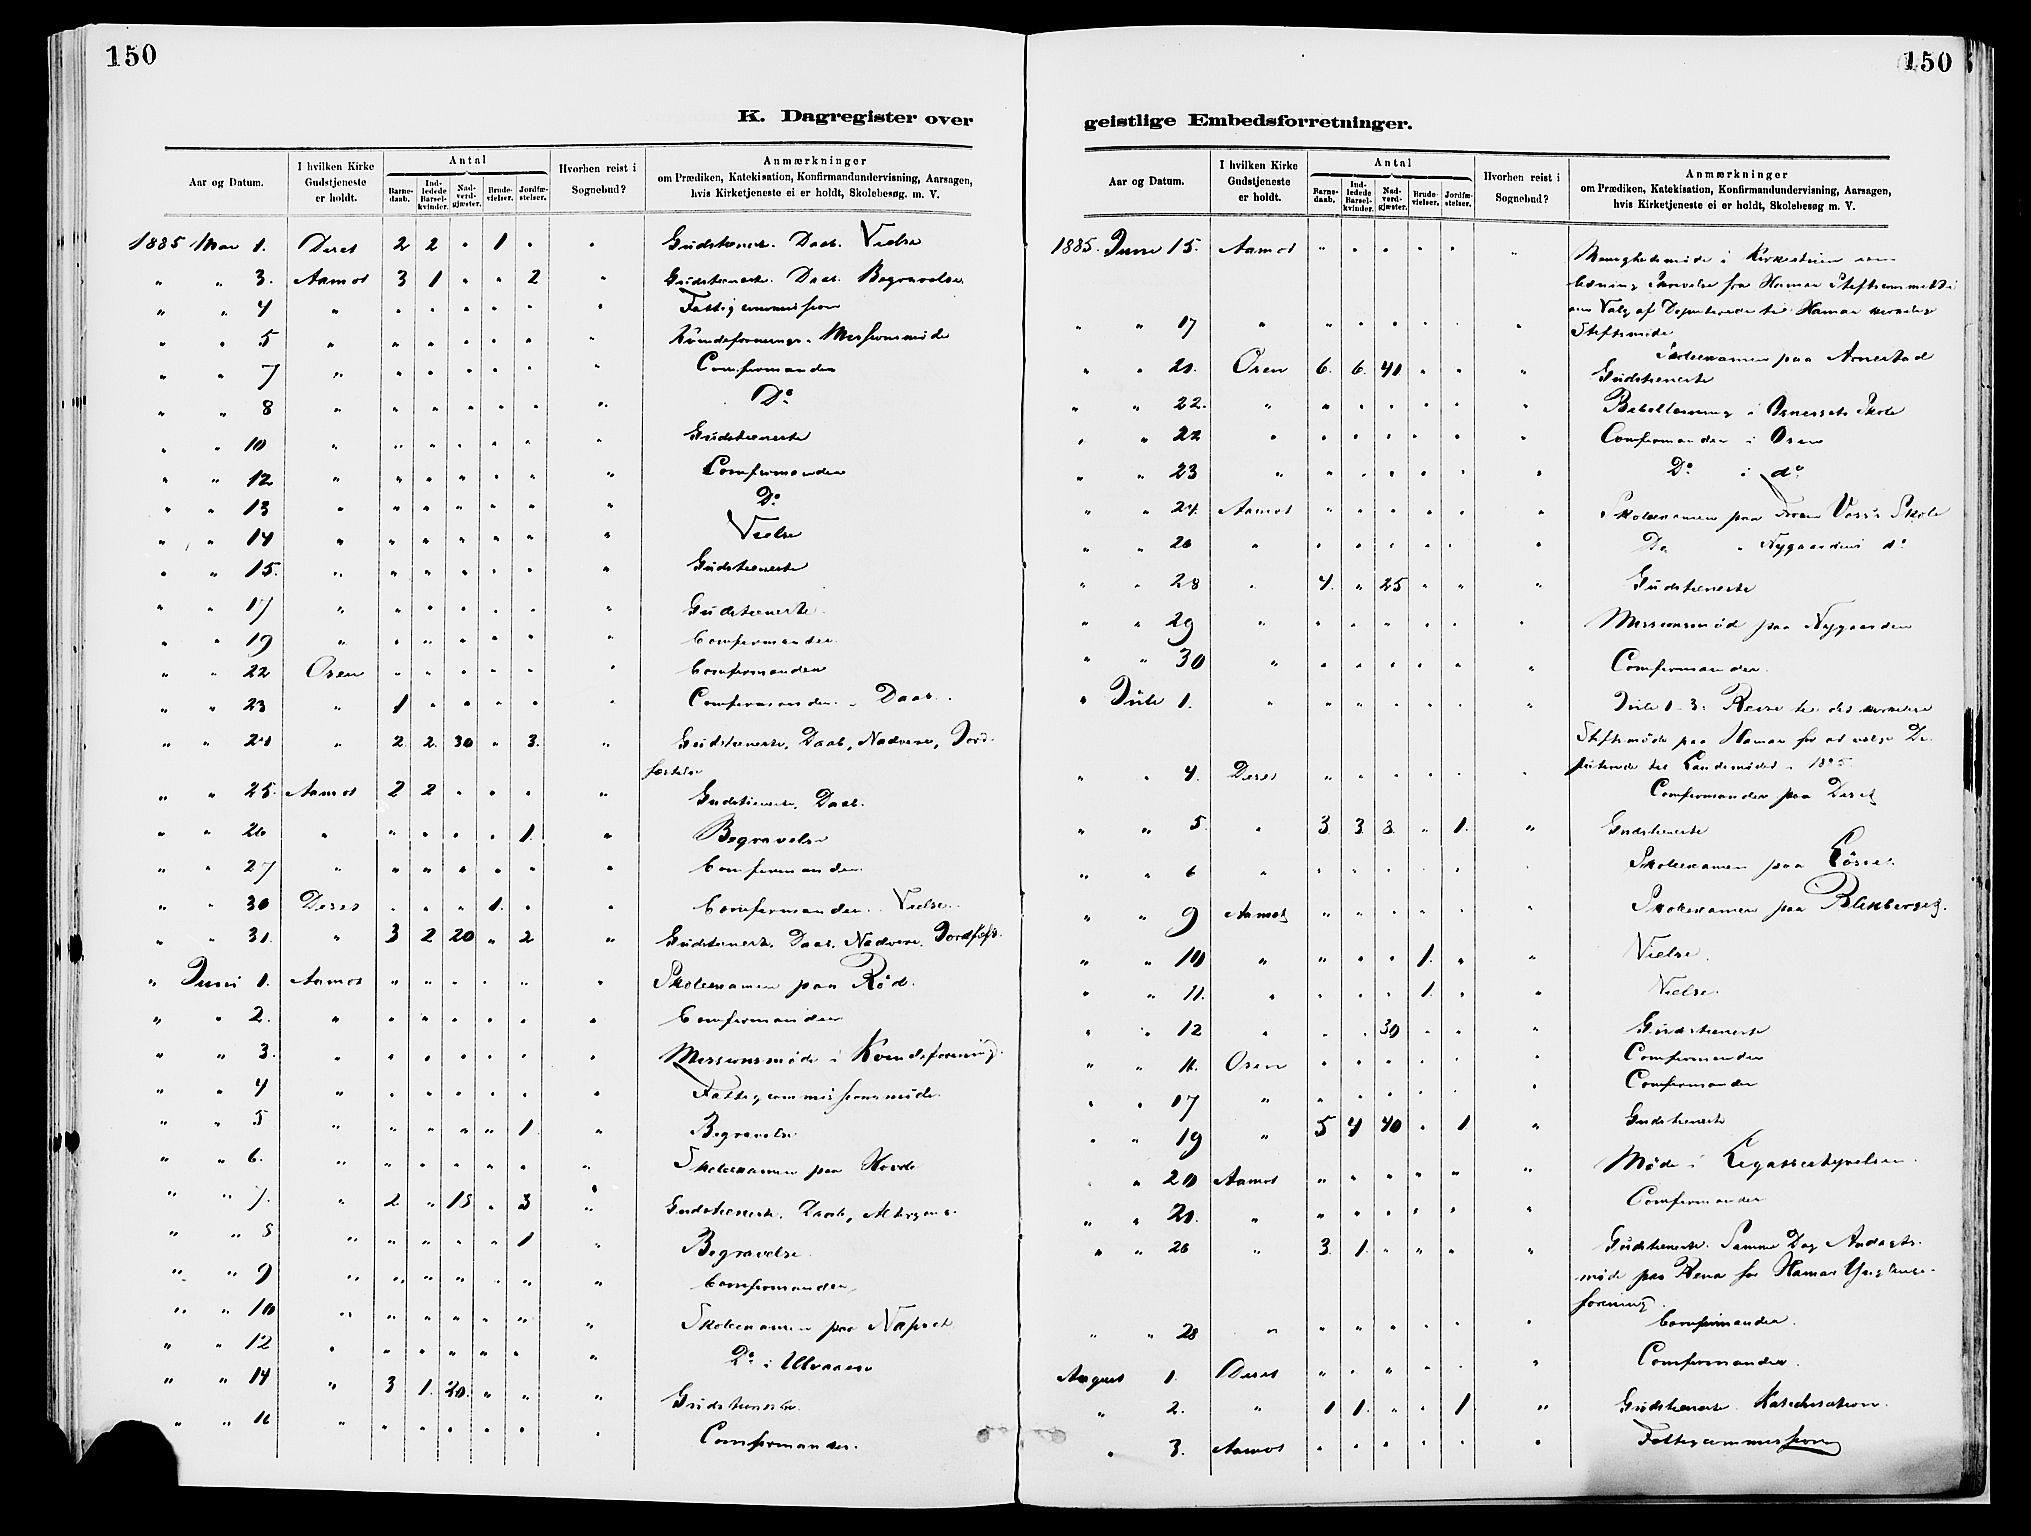 150
K. Dagregister over
Aar og Datum. I hvilken Kirke Gudstjeneste er holdt. Antal Barnedaab. Indledede Barselkvinder. Nadverdgjæster. Brudevielser. Jordfæstelser. Hvorhen reist i Sognebud? Anmærkninger om Prædiken, Katekisation, Konfirmandundervisning, Aarsagen, hvis Kirketjeneste ei er holdt, Skolebesøg. m. V.
1885 Mai 1. Deset 2 2 " 1 " " Gudstieneste. Daab. Vielse
" " 3. Aamot 3 1 " " 2 " Gudstieneste. Daab. Begravelse
" " 4 " " " " " " " Fattigcommission
" " 5 " " " " " " " Kvindeforenings Missionsmøde
" " 7 " " " " " " " Confirmander
" " 8 " " " " " " " Do
" " 10 " " " " " " " Gudstieneste
" " 12 " " " " " " " Confirmander
" " 13 " " " " " " " Do
" " 14 " " " " " " " Vielse
" " 15. " " " " " " " Gudstieneste
" " 17 " " " " " " " Gudstieneste.
" " 19 " " " " " " " Confirmander.
" " 22 Osen " " " " " " Confirmander
" " 23 " 1 " " " " " Confirmander. Daab.
" " 24 " 2 2 30 " 3. " Gudstieneste, Daab, Nadvere, Jord-
fæstelse
" " 25. Aamot 2 2 " " " " Gudstieneste, Daab.
" " 26 " " " " " 1. " Begravelse
" " 27 " " " " " " " Confirmander.
" " 30 Deset " " " 1. " " Confirmander. Vielse.
" " 31. " 3 2 20 " 2 " Gudstieneste, Daab, Nadvere, Jordfæst.
" Juni 1. Aamot " " " " " " Skoleexamen paa Rød.
" " 2. " " " " " " " Confirmander
" " 3. " " " " " " " Missionsmøde i Kvindeforening.
" " 4 " " " " " " " Fattigcommissionsmøde.
" " 5 " " " " " 1. " Begravelse
" " 6. " " " " " " " Skoleexamen paa Hovde
" " 7. " 2 " 18 " 3 " Gudstieneste, Daab, Altergang.
" " 8 " " " " " 1 " Begravelse.
" " 9 " " " " " " " Confirmander
" " 10 " " " " " " " Skoleexamen paa Næpset
" " 12 " " " " " " " Do i Ulvaaen
" " 14 " 3 1. 20. " " " Gudstieneste.
" " 16 " " " " " " " Confirmander.
150
geistlige Embedsforretninger.
Aar og Datum. I hvilken Kirke Gudstjeneste er holdt. Antal Barnedaab. Indledede Barselkvinder. Nadverdgjæster. Brudevielser. Jordfæstelser. Hvorhen reist i Sognebud? Anmærkninger om Prædiken, Katekisation, Konfirmandundervisning, Aarsagen, hvis Kirketjeneste ei er holdt, Skolebesøg m. V.
1885. Juni 15. Aamot " " " " " " Menighedsmøde i Kirkestuen
Skrivelse fra Hamar
om Valg af Deputerede til Hamar kirkelige
Stiftsmøde
" " 17 " " " " " " " Skoleexamen paa Arnestad
" " 21. Osen 6. 6. 41 " " " Gudstieneste
" " 22. " " " " " " " Bibellæsning i Osnessets Skole
" " 22 " " " " " " " Confirmander i Osen
" " 23 " " " " " " " Do i do
" " 24. Aamot " " " " " " Skoleexamen paa Skole
" " 26 " " " " " " " Do " Nygaardens do
" " 28 " 4. " 25 " " " Gudstieneste
" " 29 " " " " " " " Missionsmøde paa Nygaarden
" " 30 " " " " " " " Confirmander.
" Juli 1. " " " " " " " Juli 1-3. Reise til det kirkelige
Stiftsmøde paa Hamar for at vælge De-
puterede til Landsmødet i 1885.
" " 4. Deset " " " " " " Confirmander paa Deset
" " 5. " 3. 3. 3. " 1. " Gudstieneste
" " 6 " " " " " " " Skoleexamen paa
" " 9 Aamot " " " " " " Skoleexamen paa
" " 10 " " " " 1. " " Vielse.
" " 11. " " " " 1. " " Vielse.
" " 12 " " " 30 " " " Gudstieneste
" " 16. Osen " " " " " " Confirmander
" " 17 " " " " " " " Confirmander
" " 19 " 5 4 40 " 1 " Gudstieneste
" " 20 Aamot " " " " " " Møde i Legatbestyrelsen.
" " 21. " " " " " " " Confirmander
" " 26 " 3. 1. " " " " Gudstieneste. Samme Dag Andagts-
møde paa Rena for Hamar Ynglinge-
forening.
" " 28 " " " " " " " Confirmander.
August 1. Deset " " " " " " Confirmander.
" 2. " 1 1. " " 1 " Gudstieneste. Katechisation.
" 3. Aamot " " " " " " Fattigcommission